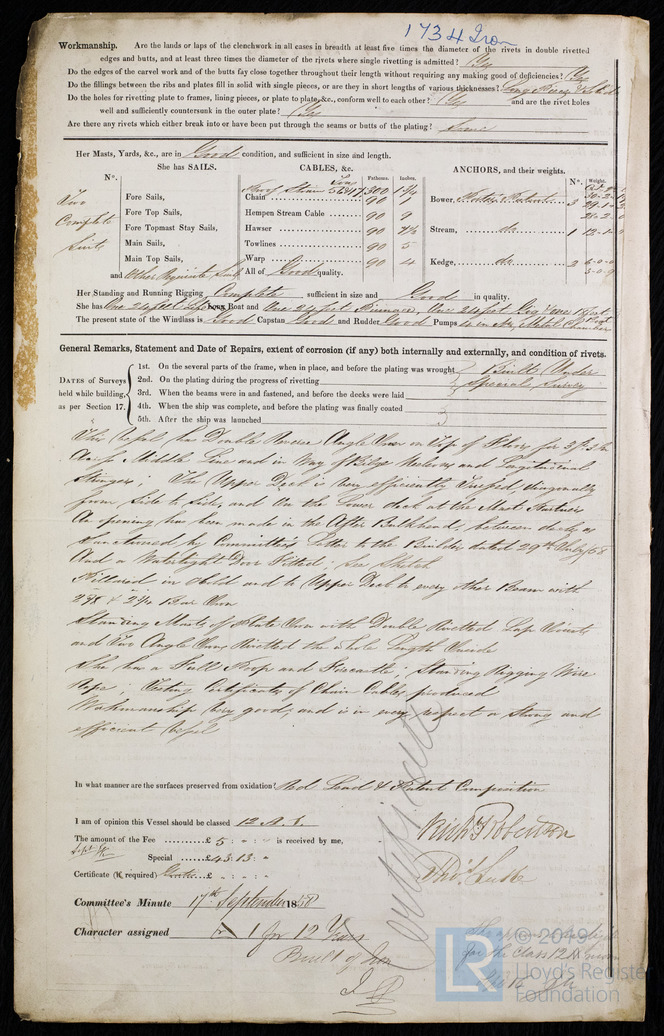 1734 Iron
Workmanship. Are the lands or laps of the clenchwork in all cases in breadth at least five times the diameter of the rivets in double rivetted
edges and butts, and at least three times the diameter of the rivets where single rivetting is admitted? Yes
Do the edges of the carvel work and of the butts fay close together throughout their length without requiring any making good of deficiencies? Yes
Do the fillings between the ribs and plates fill in solid with single pieces, or are they in short lengths of various thicknesses? Long Pieces & Solid
Do the holes for rivetting plate to frames, lining pieces, or plate to plate, &c., conform well to each other? Yes and are the rivet holes
well and sufficiently countersunk in the outer plate? Yes
Are there any rivets which either break into or have been put through the seams or butts of the plating? Some
Her Masts, Yards, &c., are in Good condition, and sufficient in size and length.
She has SAILS.
CABLES, &c.
Fathoms.
Inches.
ANCHORS, and their weights.
Nº.
Weight.
Nº.
Two
Complete
Suits
Fore Sails,
Fore Top Sails,
Fore Topmast Stay Sails,
Main Sails,
Main Top Sails,
and Other Requisite Sails
Chain
300
90
Hempen Stream Cable 90 9
Hawser 90
Towlines 90 5
Warp 90 4
All of Good quality.
Bower, 3
Stream, do 1
Kedge, do 2
Her Standing and Running Rigging Complete sufficient in size and Good in quality.
She has One Long Boat and
The present state of the Windlass is Good Capstan Good and Rudder Good Pumps
General Remarks, Statement and Date of Repairs, extent of corrosion (if any) both internally and externally, and condition of rivets.
DATES of Surveys
held while building,
as per Section 17.
1st. On the several parts of the frame, when in place, and before the plating was wrought
2nd. On the plating during the progress of rivetting
3rd. When the beams were in and fastened, and before the decks were laid
4th. When the ship was complete, and before the plating was finally coated
5th. After the ship was launched
Built Under
Special Survey
This Vessel has Double Reverse Angle Iron on Top of Floors for
Across Middle Line and in Way of Bilge Keelsons and Longitudinal
Stringers; The Upper Deck is very efficiently Trussed, diagonally
from Side to Side, and on the Lower deck at the Mast Partners
An opening has been made in the After Bulkhead, between decks as
Sanctioned by Committee's Letter to the Builder dated 29th July/58
And a Watertight Door Fitted; see Sketch
Pillared in Hold and to Upper Deck to every other Beam with
Bar Iron
Standing Masts of Plate Iron with Double Rivetted Lap Joints
and Two Angle Irons Rivetted the whole Length Inside
She has a Full Poop and Forecastle. Standing Rigging Wire
Rope; Testing Certificates of Chain Cables produced
Workmanship very good, and is in every respect a Strong and
efficient Vessel
In what manner are the surfaces preserved from oxidation? Red Lead & Patent Composition
I am of opinion this Vessel should be classed 12 A.1.
The amount of the Fee £ 5 : - : - is received by me,
Special £43 : 13 : -
Certificate (if required) £ - : - : -
Certificate
Richd Robertson
Thos. Luke
Committee's Minute 17th September 1858
Character assigned A 1 for 12 Years
Built of Iron
for the class 12 A
LR © 2019
Lloyd's Register
Foundation